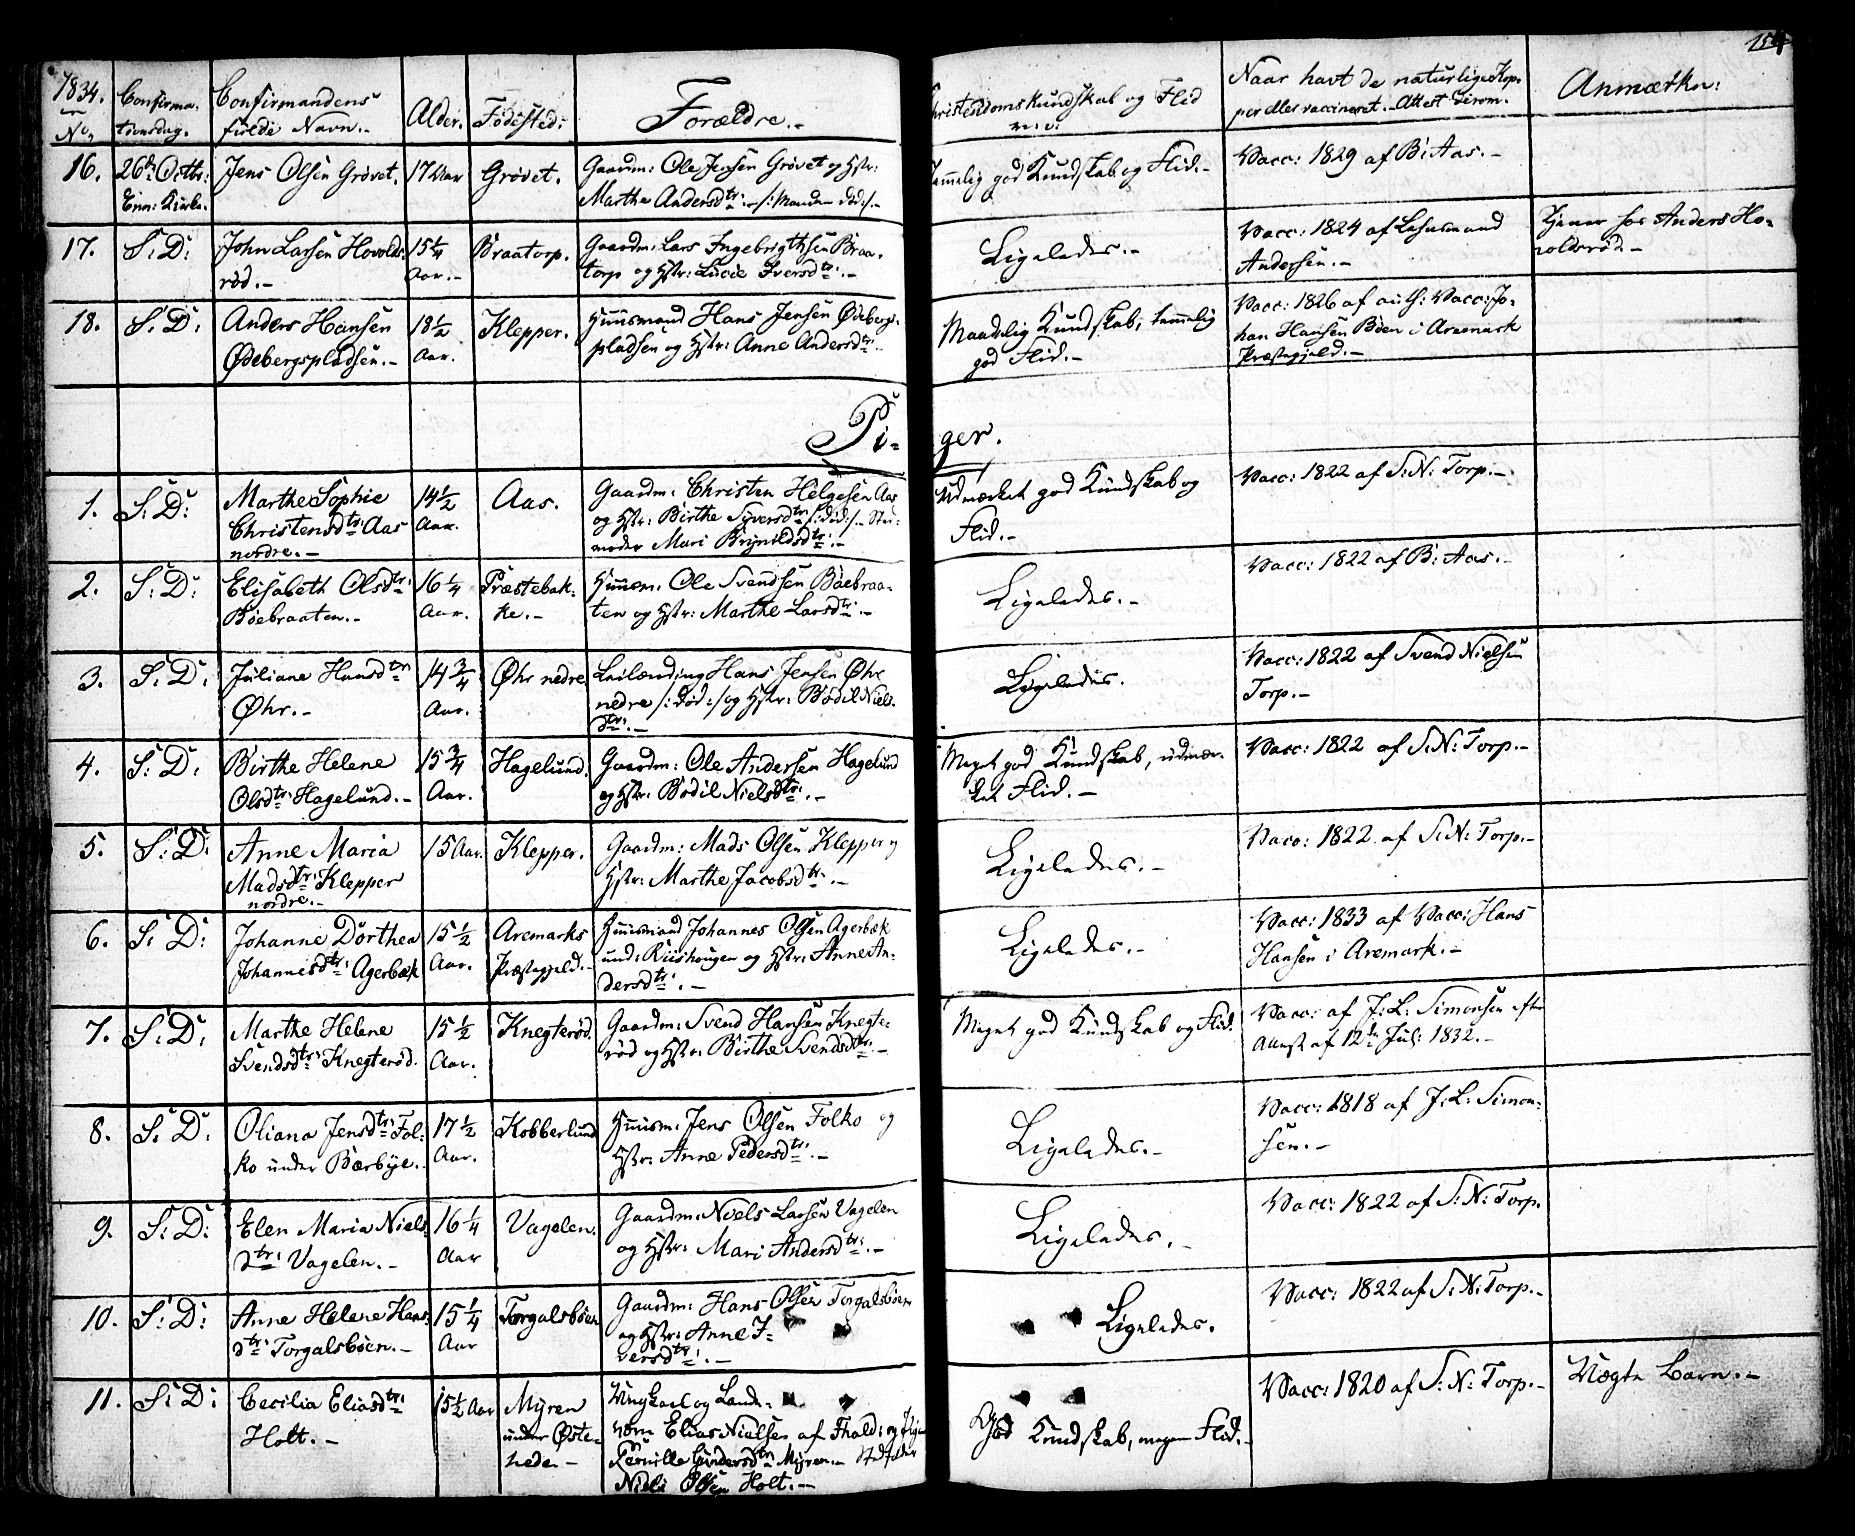 1834.
No
Confirma-
tionsdag.
Confirmandens
fulde Navn.-
Alder.
Födested:
Forældre.-
Christendomskundskab og Flid
m: v:
Naar havt de naturlige Kop-
per eller vaccineret. Attest derom.
Anmærkn:
16.
26de Octbr:
Enn: Kirke.
Jens Olsen Grövet.
17 Aar
Grövet.
Gaardm: Ole Jensen Grövet og Hstr:
Marthe Andersdtr: /: Manden död:/.-
Temmelig god Kundskab og Flid.-
Vacc: 1829 af B: Aas.-
17.
S: D:
John Larsen Hovolds-
röd.-
15 1/4
Aar.-
Braatorp.
Gaardm: Lars Ingebrigthsen Braa-
torp og Hstr: Lucie Iversdtr:.-
Ligeledes.-
Vacc: 1824 af Lehnsmand
Andersen.-
Tjener hos Anders Ho-
voldsröd.-
18.
S: D:
Anders Hansen
Ödebergspladsen.-
18 1/2
Aar.
Klepper.
Huusmand Hans Jensen Ödebergs-
pladsen og Hstr: Anne Andersdtr:.-
Maadelig Kundskab, temmelig
god Flid.-
Vacc: 1826 af auth: Vacc: Jo-
han Hansen Böen i Aremark
Præstegjeld.-
Pi-
ger.
1.
S: D:
Marthe Sophie
Christensdtr: Aas
nordre.-
14 1/2
Aar.
Aas.
Gaardm: Christen Helgesen Aas
og Hstr: Birthe Syversdtr: /: död:/.- Stev-
moder Mari Brynildsdtr:.-
Udmærket god Kundskab og
Flid.-
Vacc: 1822 af S: N: Torp.-
2.
S: D:
Elisabeth Olsdtr:
Böebraaten.-
16 1/4
Aar.
Præstebak-
ke.-
Huusm: Ole Svendsen Böebraa-
ten og Hstr: Marthe Larsdtr:.-
Ligeledes.-
Vacc: 1822 af B: Aas.-
3.
S: D:
Juliane Hansdtr:
Öhr.-
14 3/4
Aar.
Öhr nedre
Leilænding Hans Jensen Öhr
nedre /: död:/ og Hstr: Bodil Niels-
dtr:.-
Ligeledes.
Vacc: 1822 af Svend Nielsen
Torp.-
4.
S: D:
Birthe Helene
Olsdtr: Hagelund.-
15 3/4
Aar.
Hagelund.
Gaardm: Ole Andersen Hagelund
og Hstr: Bodil Nielsdtr:.-
Meget god Kundskab, udmær-
ket Flid.-
Vacc: 1822 af S: N: Torp.-
5.
S: D:
Anne Maria
Madsdtr: Klepper
nordre.-
15 Aar.
Klepper.
Gaardm: Mads Olsen Klepper og
Hstr: Marthe Jacobsdtr:.-
Ligeledes.-
Vacc: 1822 af S: N: Torp.-
6.
S: D:
Johanne Dorthea
Johannesdtr: Agerbæk
15 1/2
Aar.
Aremarks
Præstegjeld.-
Huusmand Johannes Olsen Agerbæk
und: Riishougen og Hstr: Anne An-
dersdtr:.-
Ligeledes.-
Vacc: 1833 af Vacc: Hans
Hansen i Aremark.-
7.
S: D:
Marthe Helene
Svendsdtr: Knegteröd.
15 1/2
Aar.
Knegteröd.
Gaardm: Svend Hansen Knegte-
röd og Hstr: Birthe Svendsdtr:.-
Meget god Kundskab og Flid.
Vacc: af J: L: Simonsen efter
Attest af 12te Juli 1832.-
8.
S: D:
Oliana Jensdtr: Fol-
ko under Bærbye.
17 1/2
Aar.
Kobberlund
Huusm: Jens Olsen Folko og
Hstr: Anne Pedersdtr:.-
Ligeledes.-
Vacc: 1818 af J: L: Simon-
sen.-
9.
S: D:
Elen Maria Niels-
dtr: Vagelen.-
16 1/4
Aar
Vagelen.
Gaardm: Niels Larsen Vagelen
og Hstr: Mari Andersdtr:.-
Ligeledes.-
Vacc: 1822 af S: N: Torp.
10.
S: D:
Anne Helene Hans-
dtr: Torgalsböen.-
15 1/4
Aar
Torgalsböen
Gaardm: Hans Olsen Torgalsböen
og Hstr: Anne I-
versdtr:.-
Ligeledes.
Vacc: 1822 af S: N: Torp.-
11.
S: D:
Cecilia Eliasdtr:
Holt.-
15 1/2 Aar
Myren
under Öste-
neder.-
Ungkarl og Land-
værn Elias Nielsen af Ihald: og Pigen
Pernille Gundersdtr: Myren.- Stedfader
Niels Olsen Holt.-
God Kundskab, megen Flid.-
Vacc: 1820 af S: N: Torp.-
Uægte Barn.-